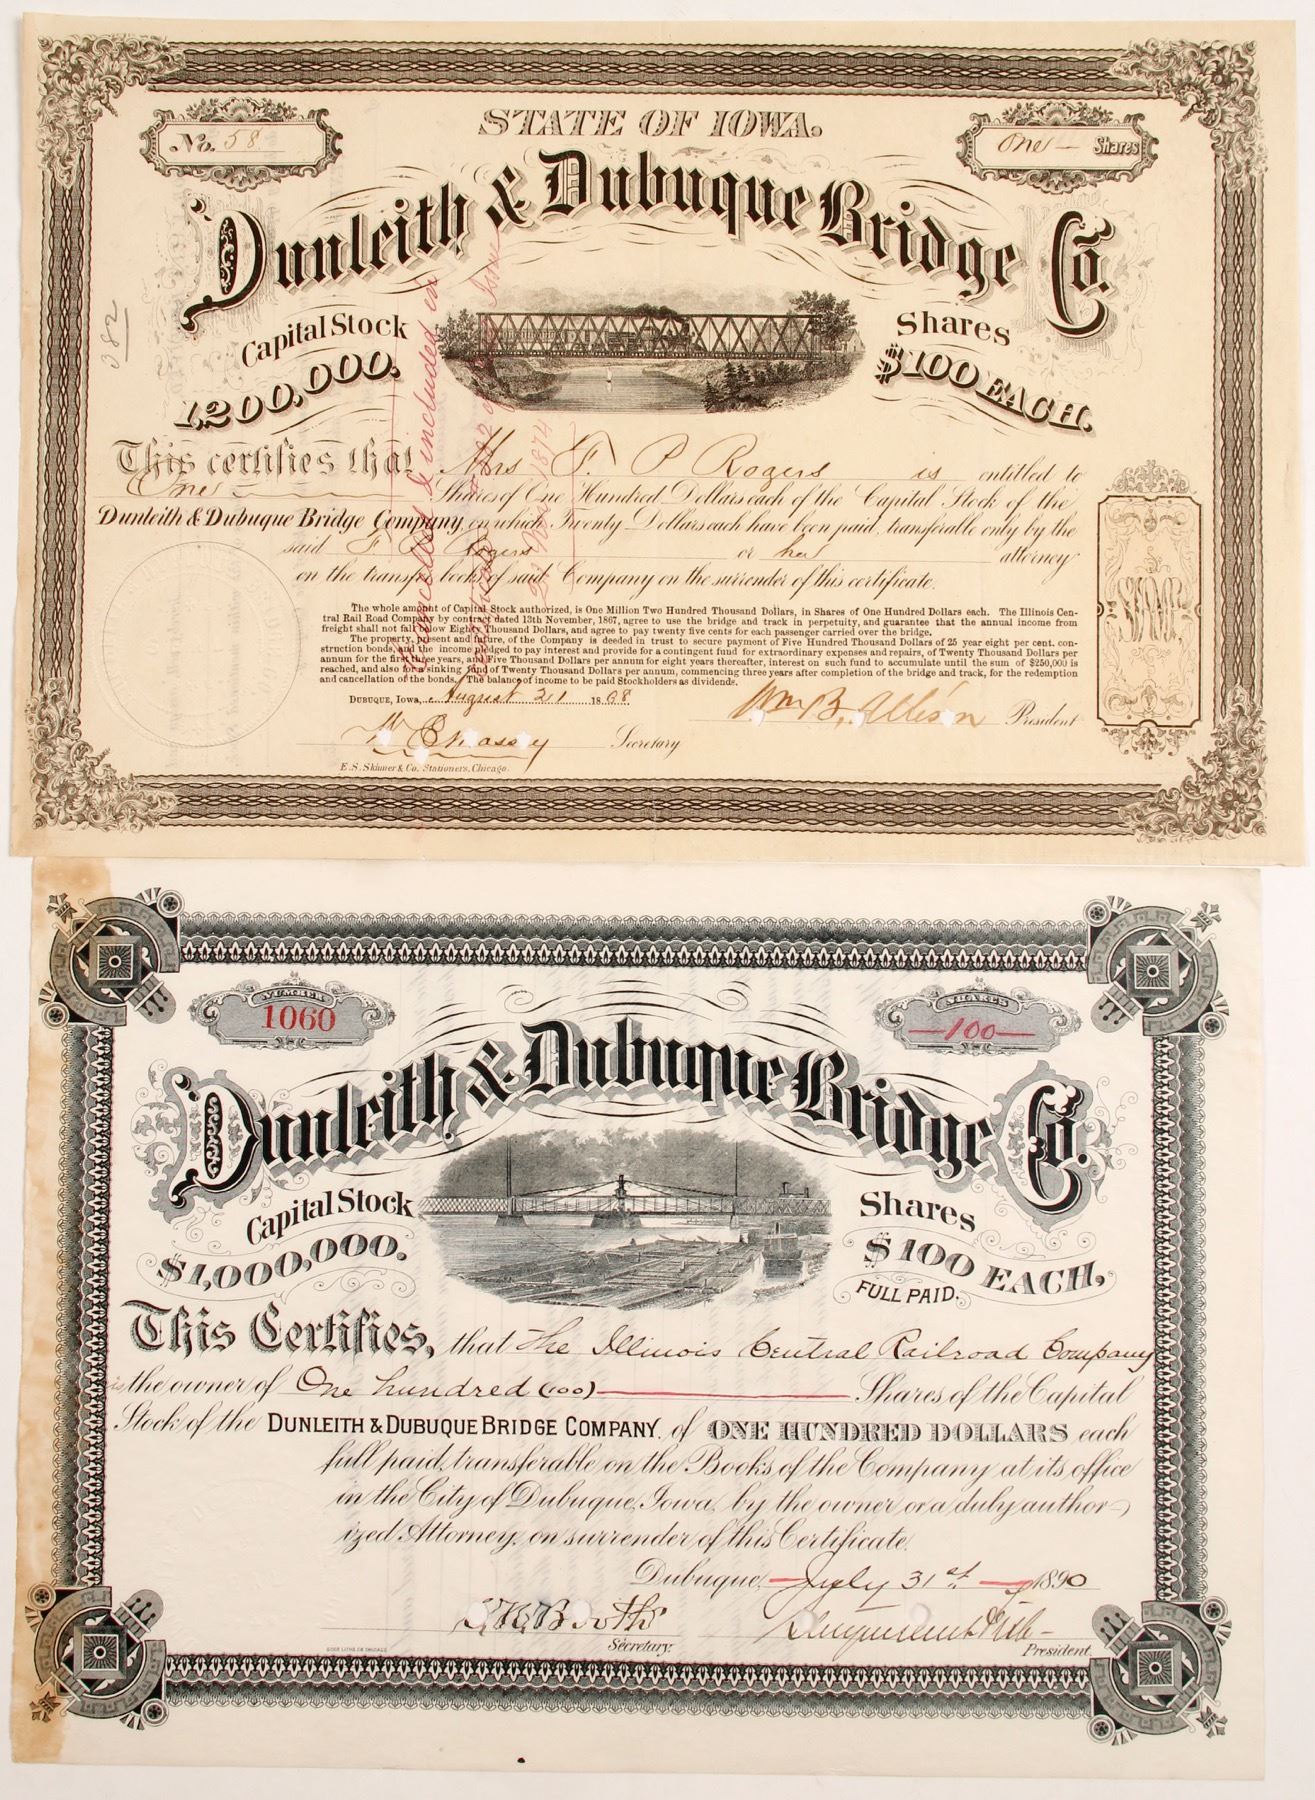 STATE OF IOWA.
No. 58
One — Shares
Dunleith & Dubuque Bridge Co.
382
Capital Stock
1,200,000.
Shares
$100 EACH.
This certifies that Mrs F. P Rogers is entitled to
One Shares of One Hundred Dollars each of the Capital Stock of the
Dunleith & Dubuque Bridge Company, on which Twenty Dollars each have been paid, transferable only by the
said F P Rogers or her attorney
on the transfer books of said Company on the surrender of this certificate.
The whole amount of Capital Stock authorized, is One Million Two Hundred Thousand Dollars, in Shares of One Hundred Dollars each. The Illinois Cen-
tral Rail Road Company by contract dated 13th November, 1867, agree to use the bridge and track in perpetuity, and guarantee that the annual income from
freight shall not fall below Eighty Thousand Dollars, and agree to pay twenty five cents for each passenger carried over the bridge.
The property, present and future, of the Company is deeded in trust to secure payment of Five Hundred Thousand Dollars of 25 year eight per cent. con-
struction bonds, and the income pledged to pay interest and provide for a contingent fund for extraordinary expenses and repairs, of Twenty Thousand Dollars per
annum for the first three years, and Five Thousand Dollars per annum for eight years thereafter, interest on such fund to accumulate until the sum of $250,000 is
reached, and also for a sinking fund of Twenty Thousand Dollars per annum, commencing three years after completion of the bridge and track, for the redemption
and cancellation of the bonds. The balance of income to be paid Stockholders as dividends.
DUBUQUE, IOWA, August 21 1868
Wm B. Allison President
Secretary
E. S. Skinner & Co. Stationers, Chicago.
Cancelled & included in
2d Nov 1874
NUMBER
1060
SHARES
—100—
Dunleith & Dubuque Bridge Co.
Capital Stock
$1,000,000.
Shares
$100 EACH,
FULL PAID.
This Certifies, that The Illinois Central Railroad Company
is the owner of One hundred (100) Shares of the Capital
Stock of the DUNLEITH & DUBUQUE BRIDGE COMPANY. of ONE HUNDRED DOLLARS each
full paid, transferable on the Books of the Company at its office
in the City of Dubuque, Iowa, by the owner or a duly author-
ized Attorney, on surrender of this Certificate.
Dubuque, — July 31st — 1890
Secretary.
President.